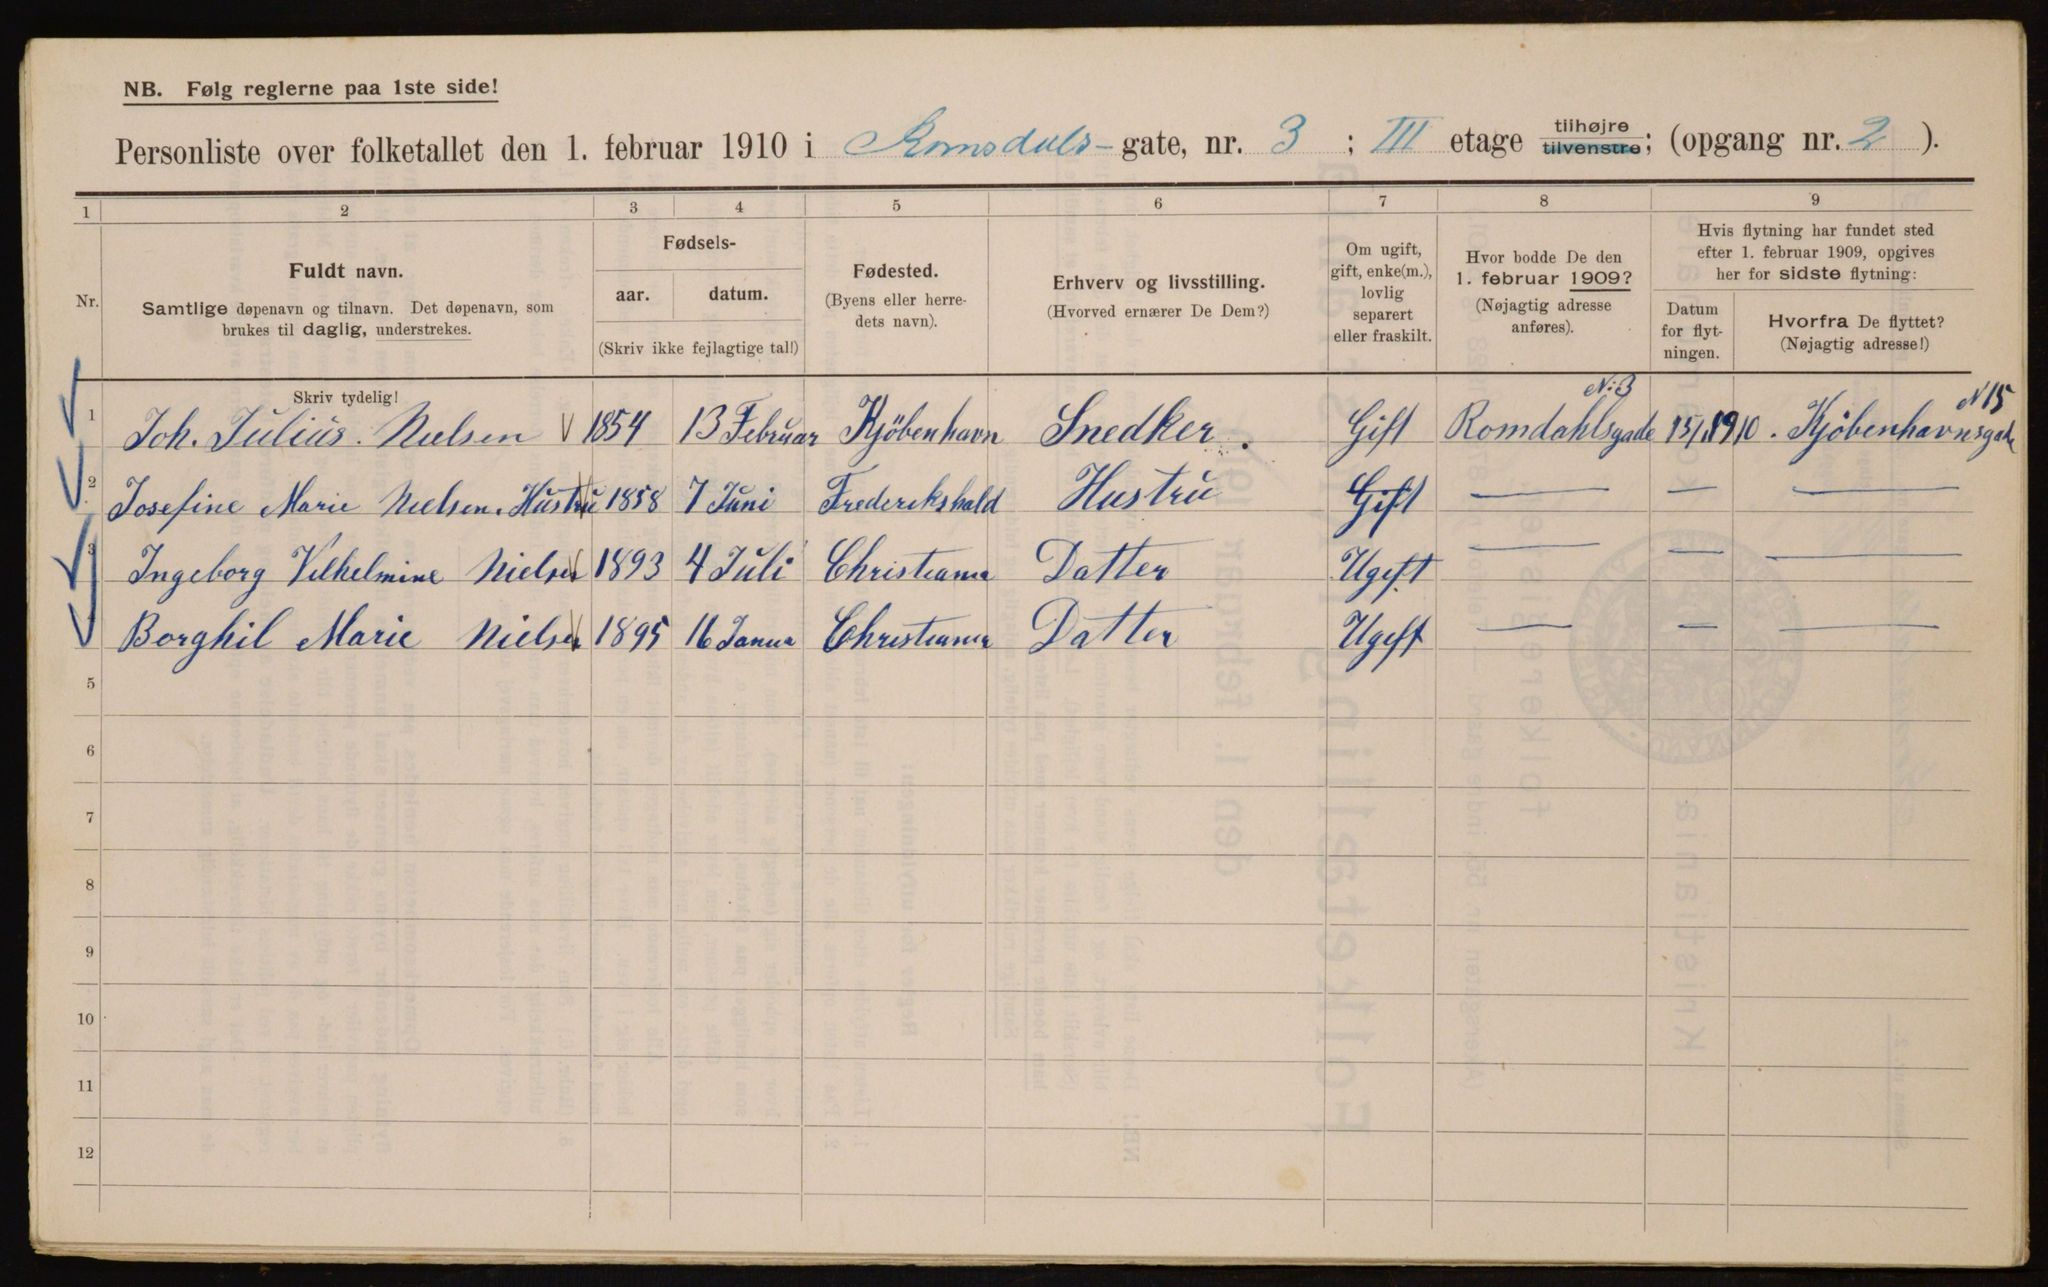 NB. Følg reglerne paa 1ste side!
Personliste over folketallet den 1. februar 1910 i Romsdals-gate, nr. 3; III etage tilhøjre tilvenstre; (opgang nr. 2).
1 2 3 4 5 6 7 8 9
Nr.
Fuldt navn.
Samtlige døpenavn og tilnavn. Det døpenavn, som
brukes til daglig, understrekes.
Fødsels-
aar. datum.
(Skriv ikke fejlagtige tal!)
Fødested.
(Byens eller herre-
dets navn).
Erhverv og livsstilling.
(Hvorved ernærer De Dem?)
Om ugift,
gift, enke(m.),
lovlig
separert
eller fraskilt.
Hvor bodde De den
1. februar 1909?
(Nøjagtig adresse
anføres).
Hvis flytning har fundet sted
efter 1. februar 1909, opgives
her for sidste flytning:
Datum
for flyt-
ningen.
Hvorfra De flyttet?
(Nøjagtig adresse!)
Skriv tydelig!
1 Joh. Julius. Nielsen 1854 13 Februar Kjöbenhavn Snedker. Gift Romdahlsgade N:3 15/1 1910. Kjöbenhavnsgade N 15
2 Josefine Marie Nielsen. Hustru 1858 7 Juni Frederikshald Hustru Gift — — —
3 Ingeborg Vilhelmine Nielsen 1893 4 Juli Christiania Datter Ugift — — —
Borghil Marie Nielsen 1895 16 Janua Christiania Datter Ugift — — —
5
6
7
8
9
10
11
12